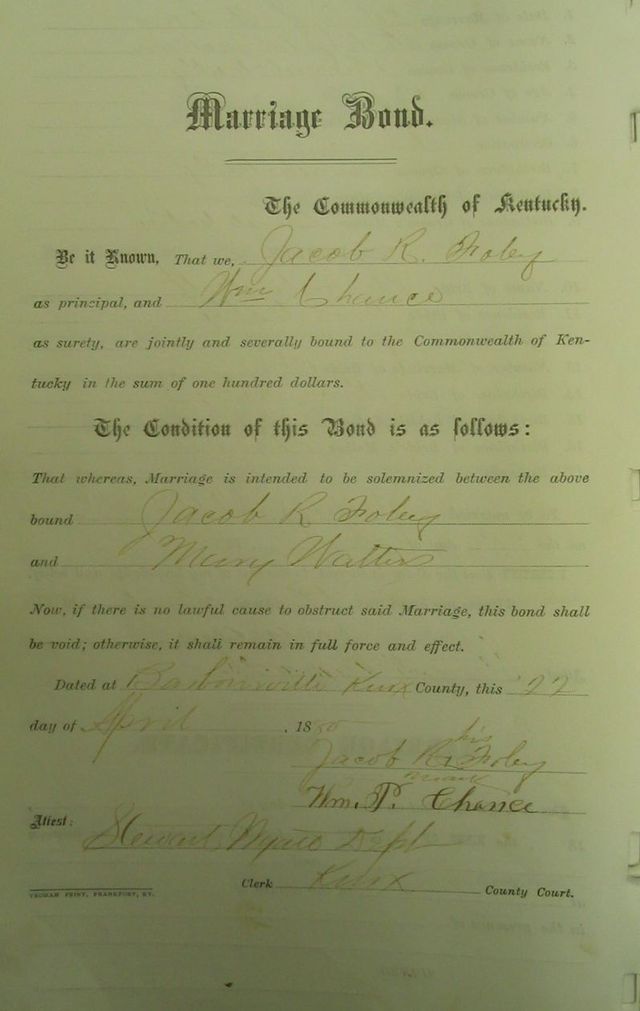 Marriage Bond.
The Commonwealth of Kentucky.
Be it Known, That we, Jacob R. Foley
as principal, and Wm Chance
as surety, are jointly and severally bound to the Commonwealth of Ken-
tucky in the sum of one hundred dollars.
The Condition of this Bond is as follows:
That whereas, Marriage is intended to be solemnized between the above
bound Jacob R Foley
and Mary Walters
Now, if there is no lawful cause to obstruct said Marriage, this bond shall
be void; otherwise, it shall remain in full force and effect.
Dated at Barbourville Knox County, this 22
day of April, 1880
his
Jacob R. Foley
mark
Wm. P. Chance
Attest:
Stewart
Clerk Knox County Court.
YEOMAN PRINT, FRANKFORT, KY.